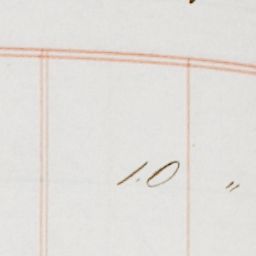 1.0 "